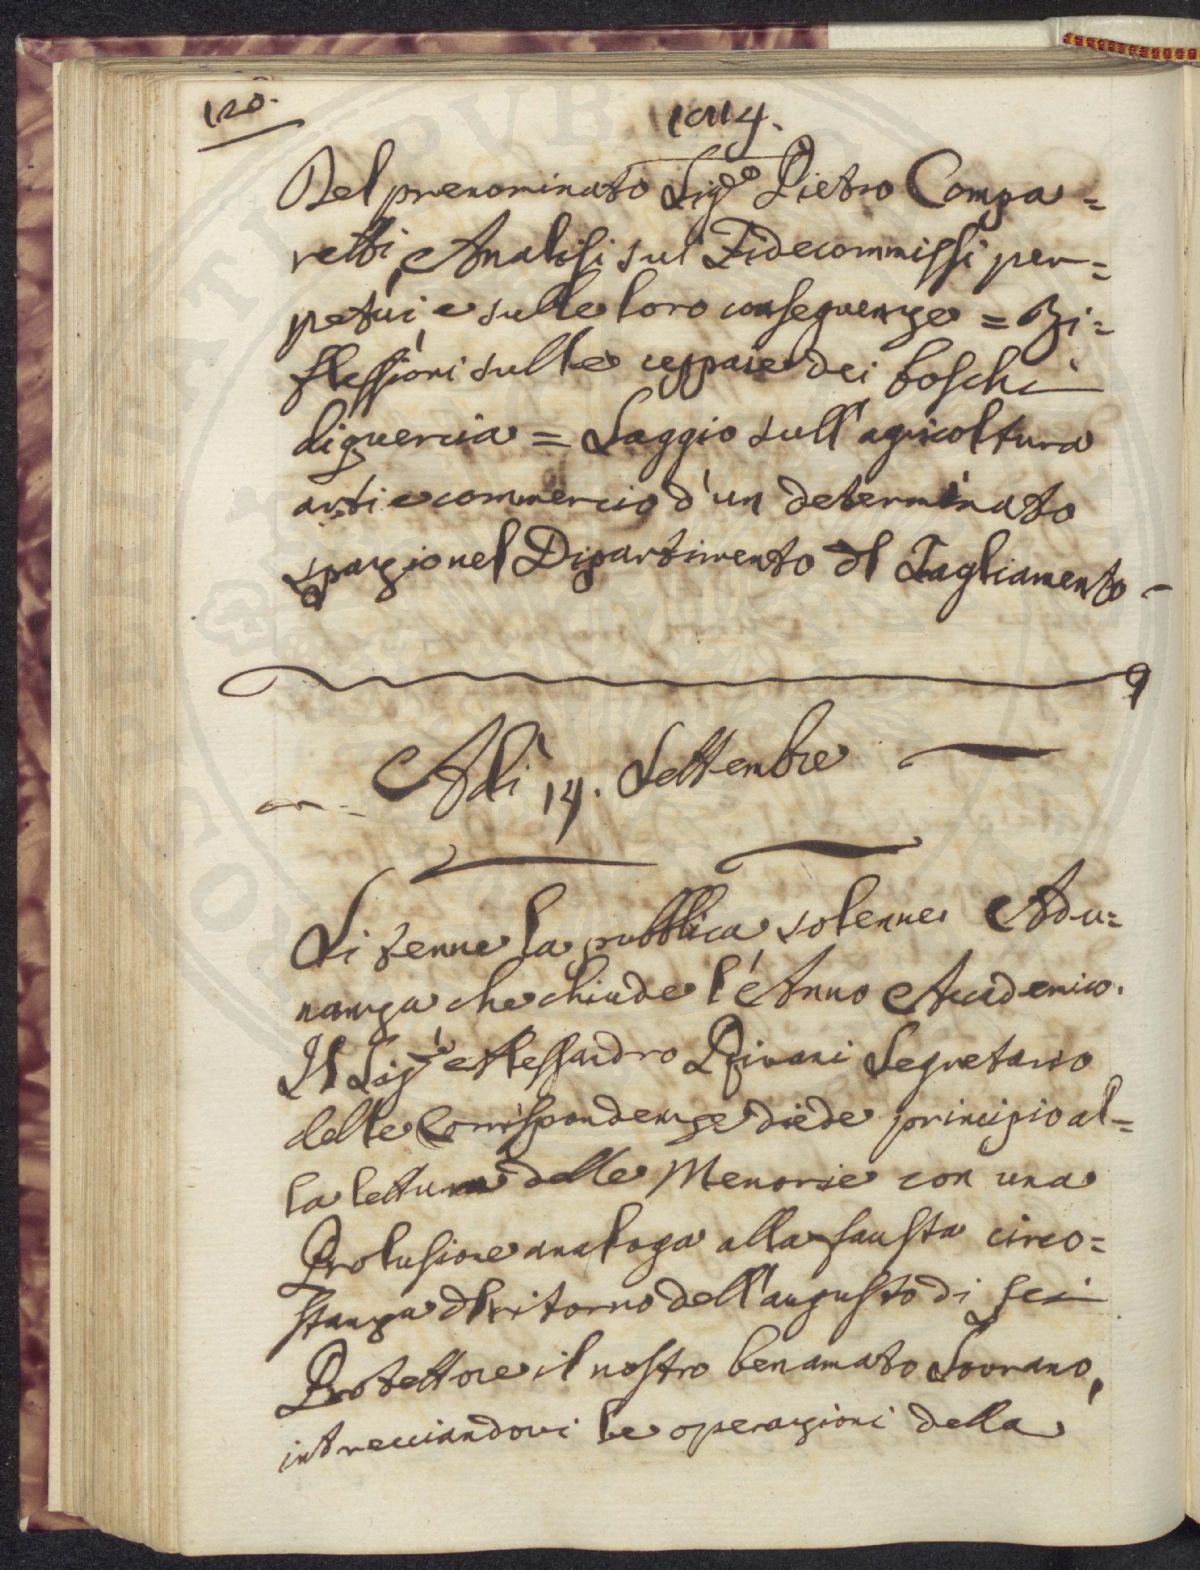 120.
1814.
Del prenominato Sig.º Pietro Compa=
retti, Analisi sui Fidecommissi per=
petui e sulle loro conseguenze = Ri=
flessioni sulle ceppaie dei boschi
di quercia = Saggio sull'agricoltura
arti e commercio d'un determinato
spazio nel Dipartimento del Tagliamento -
Adì 14. Settembre
Si tenne la pubblica solenne Adu=
nanza che chiude l'Anno Accademico.
Il Sig.r Alessandro Rivani Segretario
delle Corrispondenze diede principio al=
la lettura delle Memorie con una
Prolusione analoga alla fausta circo=
stanza del ritorno dell'augusto di lei
Protettore il nostro benamato Sovrano,
intrecciandovi le operazioni della